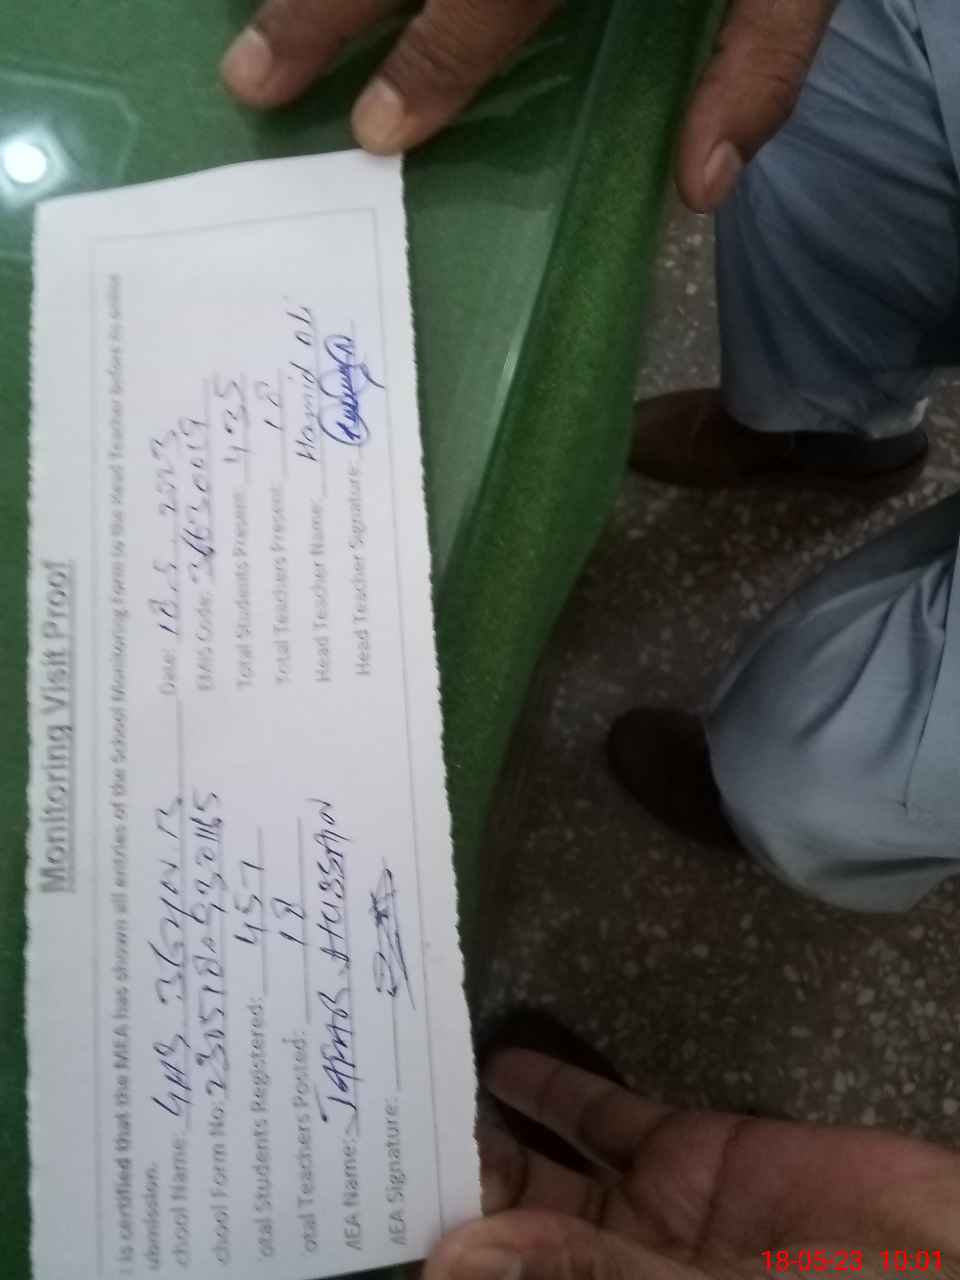 Monitoring Visit Proof
is certified that the MEA has shown all entries of the School Monitoring form to the Head Teacher before its online
ubmission.
chool Name: GHS Date: 18.5.2023
chool Form No: EMIS Code:
otal Students Registered: 457 Total Students Present: 435
otal Teachers Posted: 18 Total Teachers Present: 18
AEA Name: JAFAR HUSSAIN Head Teacher Name: Hamid Ali
AEA Signature: Head Teacher Signature:
18-05-23 10:01